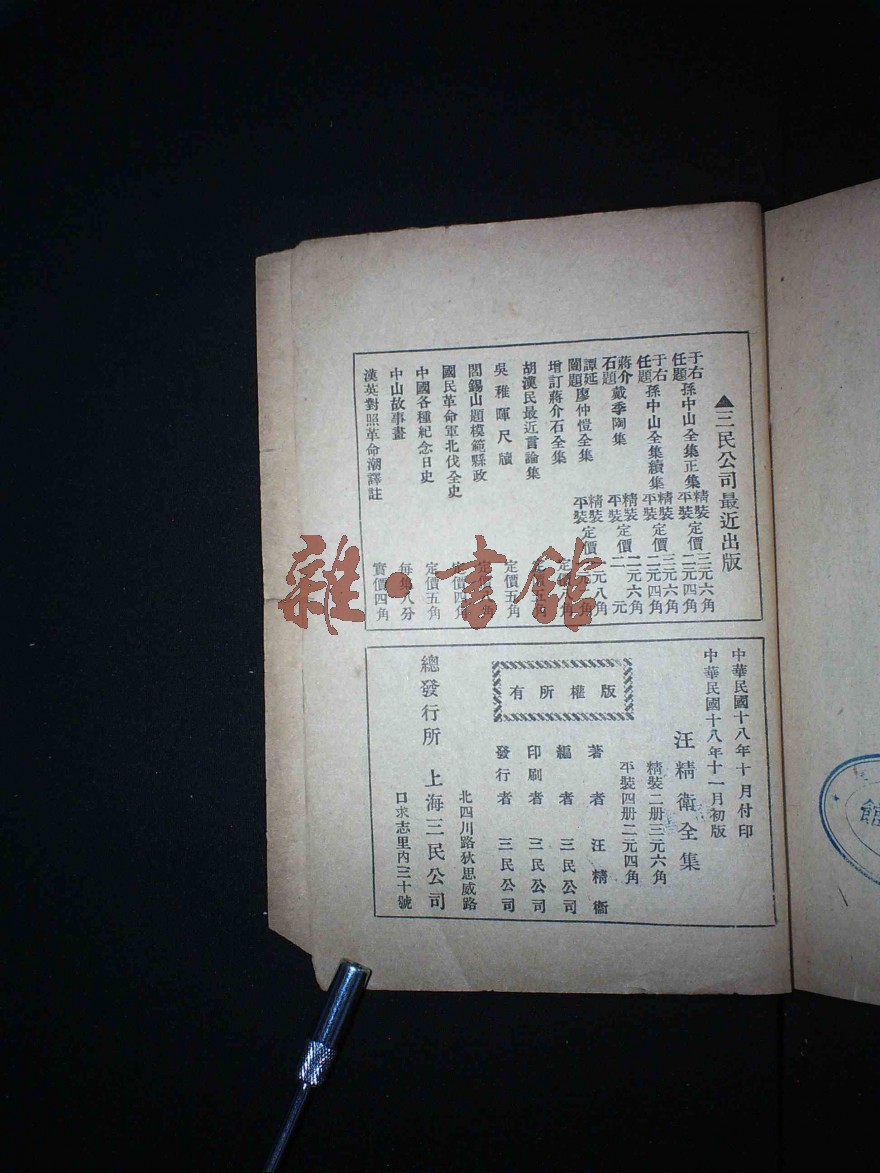 ▲三民公司最近出版
于右任題 孫中山全集正集 精裝 定價 三元六角 平裝 二元四角
于右任題 孫中山全集續集 精裝 定價 三元六角 平裝 二元四角
蔣介石題 戴季陶集 精裝 定價 二元六角 平裝 二元
譚延闓題 廖仲愷全集 精裝 定價 元八角 平裝
增訂蔣介石全集 定價
胡漢民最近言論集
吳稚暉尺牘 定價五角
閻錫山題模範縣政 定價
國民革命軍北伐全史 定價四角
中國各種紀念日史 定價五角
中山故事畫 每集八分
漢英對照革命潮譯註 實價四角
中華民國十八年十月付印
中華民國十八年十一月初版
汪精衛全集
精裝二册三元六角
平裝四册二元四角
版權所有
著者 汪精衞
編者 三民公司
印刷者 三民公司
發行者 三民公司
總發行所 上海三民公司
北四川路狄思威路
口求志里內三十號
雜·書館
館